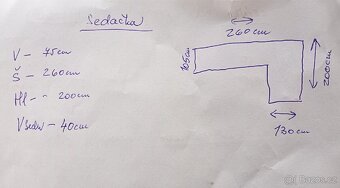 Sedačka
V - 75cm
Š - 260cm
Hl - 200cm
V sedu - 40cm
260cm
105cm
200cm
130cm
Bazos.cz